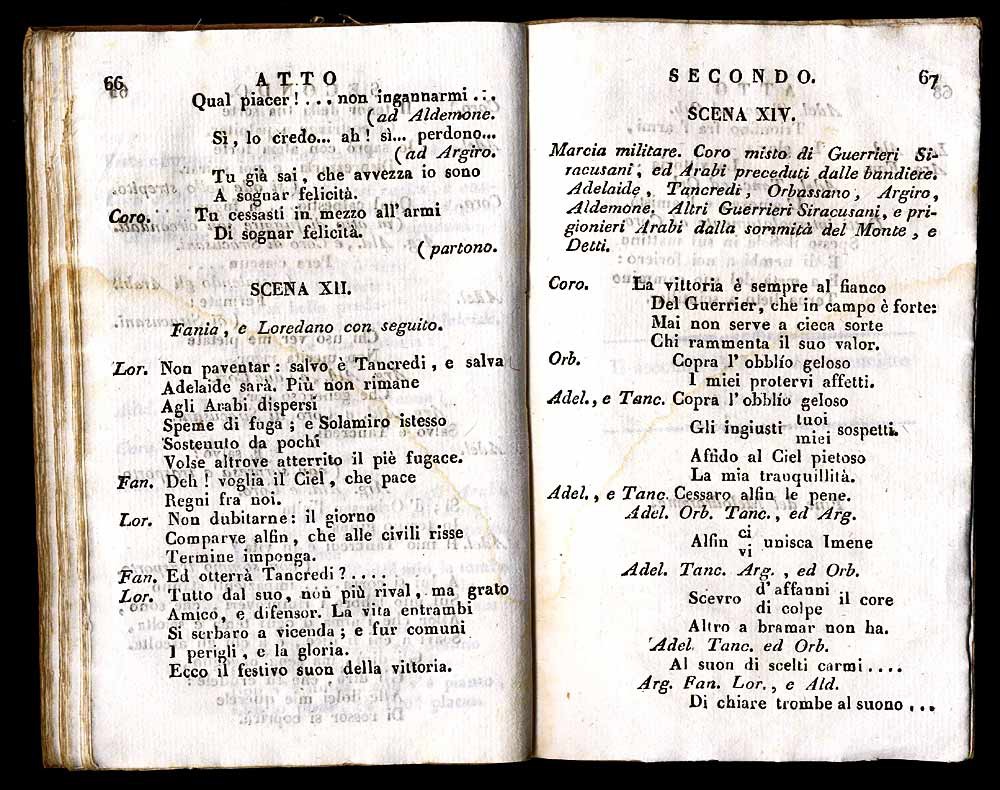 66
ATTO
Qual piacer! . . . non ingannarmi . . .
(ad Aldemone.
Sì, lo credo... ah! sì... perdono...
(ad Argiro.
Tu già sai, che avvezza io sono
A sognar felicità.
Coro. Tu cessasti in mezzo all' armi
Di sognar felicità.
(partono.
SCENA XII.
Fania, e Loredano con seguito.
Lor. Non paventar: salvo è Tancredi, e salva
Adelaide sarà. Più non rimane
Agli Arabi dispersi
Speme di fuga; e Solamiro istesso
Sostenuto da pochi
Volse altrove atterrito il piè fugace.
Fan. Deh! voglia il Ciel, che pace
Regni fra noi.
Lor. Non dubitarne: il giorno
Comparve alfin, che alle civili risse
Termine imponga.
Fan. Ed otterrà Tancredi? . . . .
Lor. Tutto dal suo, non più rival, ma grato
Amico, e difensor. La vita entrambi
Si serbaro a vicenda; e fur comuni
I perigli, e la gloria.
Ecco il festivo suon della vittoria.
SECONDO.
67
SCENA XIV.
Marcia militare. Coro misto di Guerrieri Si-
racusani, ed Arabi preceduti dalle bandiere.
Adelaide, Tancredi, Orbassano, Argiro,
Aldemone. Altri Guerrieri Siracusani, e pri-
gionieri Arabi dalla sommità del Monte, e
Detti.
Coro. La vittoria è sempre al fianco
Del Guerrier, che in campo è forte:
Mai non serve a cieca sorte
Chi rammenta il suo valor.
Orb. Copra l' obblío geloso
I miei protervi affetti.
Adel., e Tanc. Copra l' obblío geloso
Gli ingiusti tuoi miei sospetti.
Affido al Ciel pietoso
La mia tranquillità.
Adel., e Tanc. Cessaro alfin le pene.
Adel. Orb. Tanc., ed Arg.
Alfin ci vi unisca Imene
Adel. Tanc. Arg., ed Orb.
Scevro d' affanni di colpe il core
Altro a bramar non ha.
Adel. Tanc. ed Orb.
Al suon di scelti carmi . . . .
Arg. Fan. Lor., e Ald.
Di chiare trombe al suono . . .